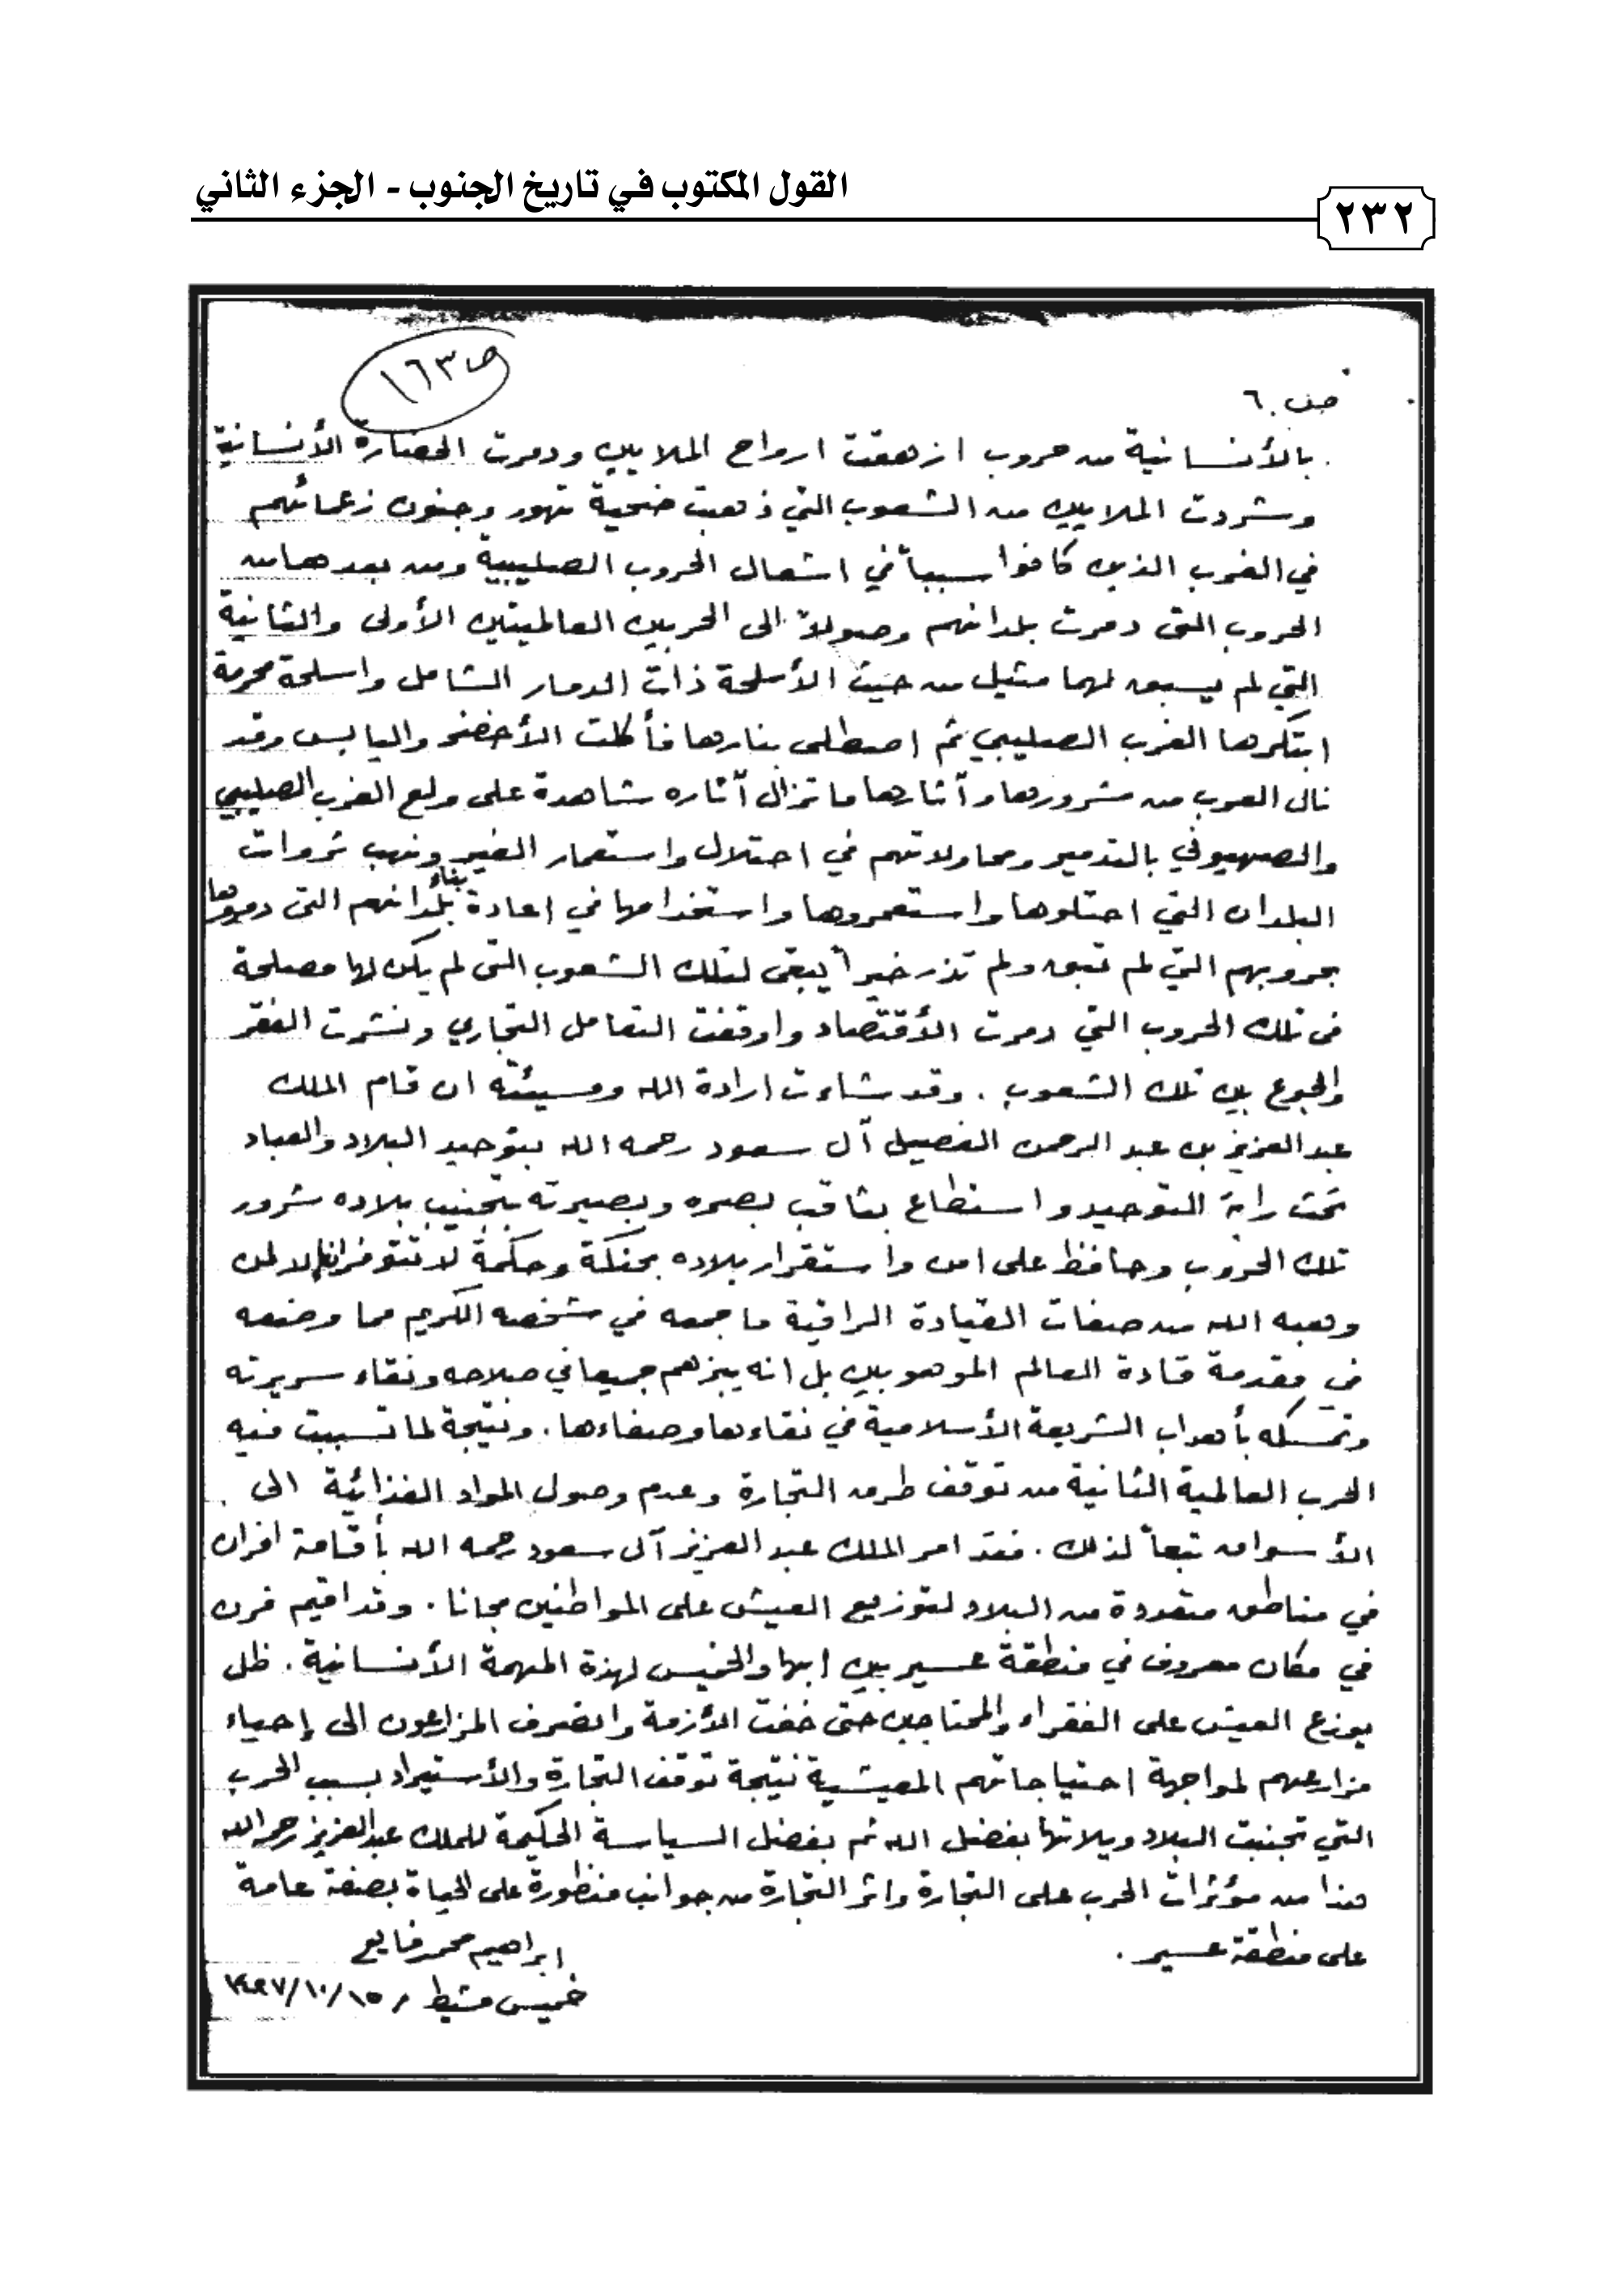 القول المكتوب في تاريخ الجنوب - الجزء الثاني
٢٣٢
ص ١٦٣
ص ٦
بالأنسانية من حروب ازهقت ارواح الملايين ودمرت الحضارة الأنسانية
وشردت الملايين من الشعوب التي ذهبت ضحية تهور وجنون زعمائهم
في الغرب الذين كانوا سبباً في اشعال الحروب الصليبية ومن بعدها من
الحروب التى دمرت بلدانهم وصولاً الى الحربين العالميتين الأولى والثانية
التي لم يسبق لهما مثيل من حيث الأسلحة ذات الدمار الشامل واسلحة محرمة
ابتكرها الغرب الصليبي ثم اصطلى بنارها فأكلت الأخضر واليابس وقد
نال العرب من شرورها وآثارها ما تزال آثاره شاهدة على ولع الغرب الصليبي
والصهيوني بالتدمير ومحاولاتهم في احتلال واستعمار الغير ونهب ثروات
البلدان التي احتلوها واستعمروها واستخدامها في اعادة بناء بلدانهم التى دمروها
بحروبهم التي لم تبق ولم تذر خيراً يبقى لتلك الشعوب التى لم يكن لها مصلحة
في تلك الحروب التي دمرت الأقتصاد واوقفت التعامل التجاري ونشرت الفقر
والجوع بين تلك الشعوب . وقد شاءت ارادة الله ومسيئته ان قام الملك
عبد العزيز بن عبد الرحمن الفصيل آل سعود رحمه الله بتوحيد البلاد والعباد
تحت راية التوحيد واستطاع بثاقب بصره وبصيرته بتجنيب بلاده شرور
تلك الحروب وحافظ على امن واستقرار بلاده بحنكة وحكمة لا تتوفر الا لمن
وهبه الله من صفات القيادة الراقية ما جمعه في شخصه الكريم مما وضعه
في مقدمة قادة العالم الموهوبين بل انه يبزهم جميعا في صلاحه ونقاء سريرته
وتمسكه بأهداب الشريعة الأسلامية في نقاءها وصفاءها . ونتيجة لما تسببت فيه
الحرب العالمية الثانية من توقف طرق التجارة وعدم وصول المواد الغذائية الى
الأسواق تبعاً لذلك . فقد امر الملك عبد العزيز آل سعود رحمه الله بأقامة افران
في مناطق متعددة من البلاد لتوزيع العيش على المواطنين مجانا . وقد اقيم فرن
في مكان معروف في منطقة عسير بين ابها والخميس لهذة المهمة الأنسانية . ظل
يوزع العيش على الفقراء والمحتاجين حتى خفت الأزمة وانصرف المزارعون الى إحياء
مزارعهم لمواجهة احتياجاتهم المعيشية نتيجة توقف التجارة والأستيراد بسبب الحرب
التي تجنبت البلاد ويلاتها بفضل الله ثم بفضل السياسة الحكيمة للملك عبد العزيز رحمه الله
هذا من مؤثرات الحرب على التجارة واثر التجارة من جوانب منظورة على الحياة بصفة عامة
على منطقة عسير .
ابراهيم محمد فايع
خميس مشيط ١٤٢٧/١٠/١٥